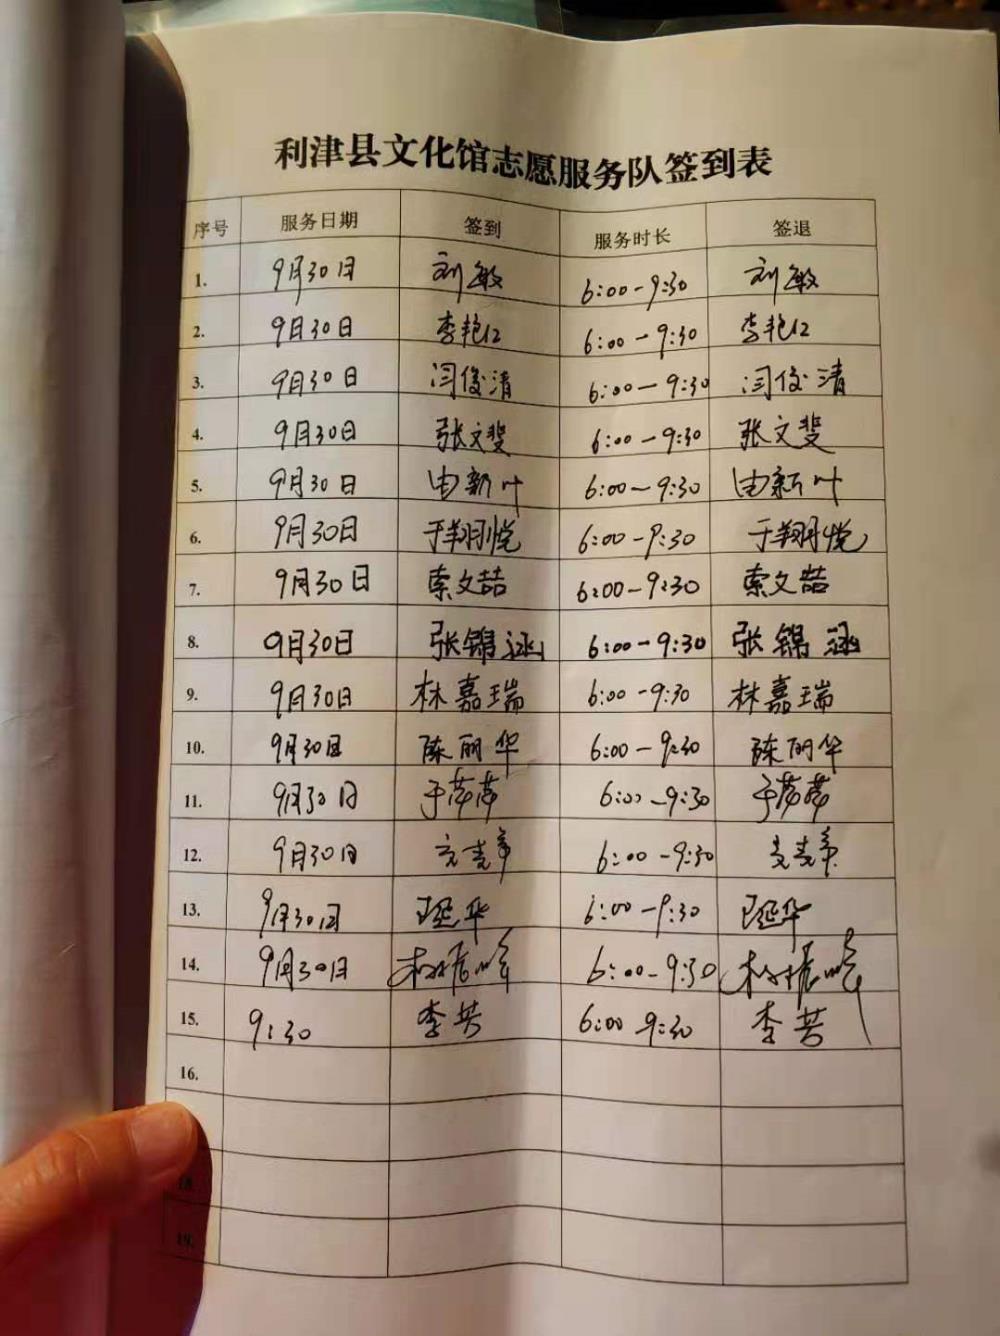 利津县文化馆志愿服务队签到表
序号 服务日期 签到 服务时长 签退
1. 9月30日 刘敏 6:00-9:30 刘敏
2. 9月30日 李艳红 6:00-9:30 李艳红
3. 9月30日 闫俊清 6:00-9:30 闫俊清
4. 9月30日 张文斐 6:00-9:30 张文斐
5. 9月30日 由新叶 6:00-9:30 由新叶
6. 9月30日 于翔悦 6:00-9:30 于翔悦
7. 9月30日 索文喆 6:00-9:30 索文喆
8. 9月30日 张锦涵 6:00-9:30 张锦涵
9. 9月30日 林嘉瑞 6:00-9:30 林嘉瑞
10. 9月30日 陈丽华 6:00-9:30 陈丽华
11. 9月30日 于莎莎 6:00-9:30 于莎莎
12. 9月30日 6:00-9:30
13. 9月30日 王延华 6:00-9:30 王延华
14. 9月30日 6:00-9:30
15. 9:30 李芸 6:00 9:30 李芸
16.
18.
19.